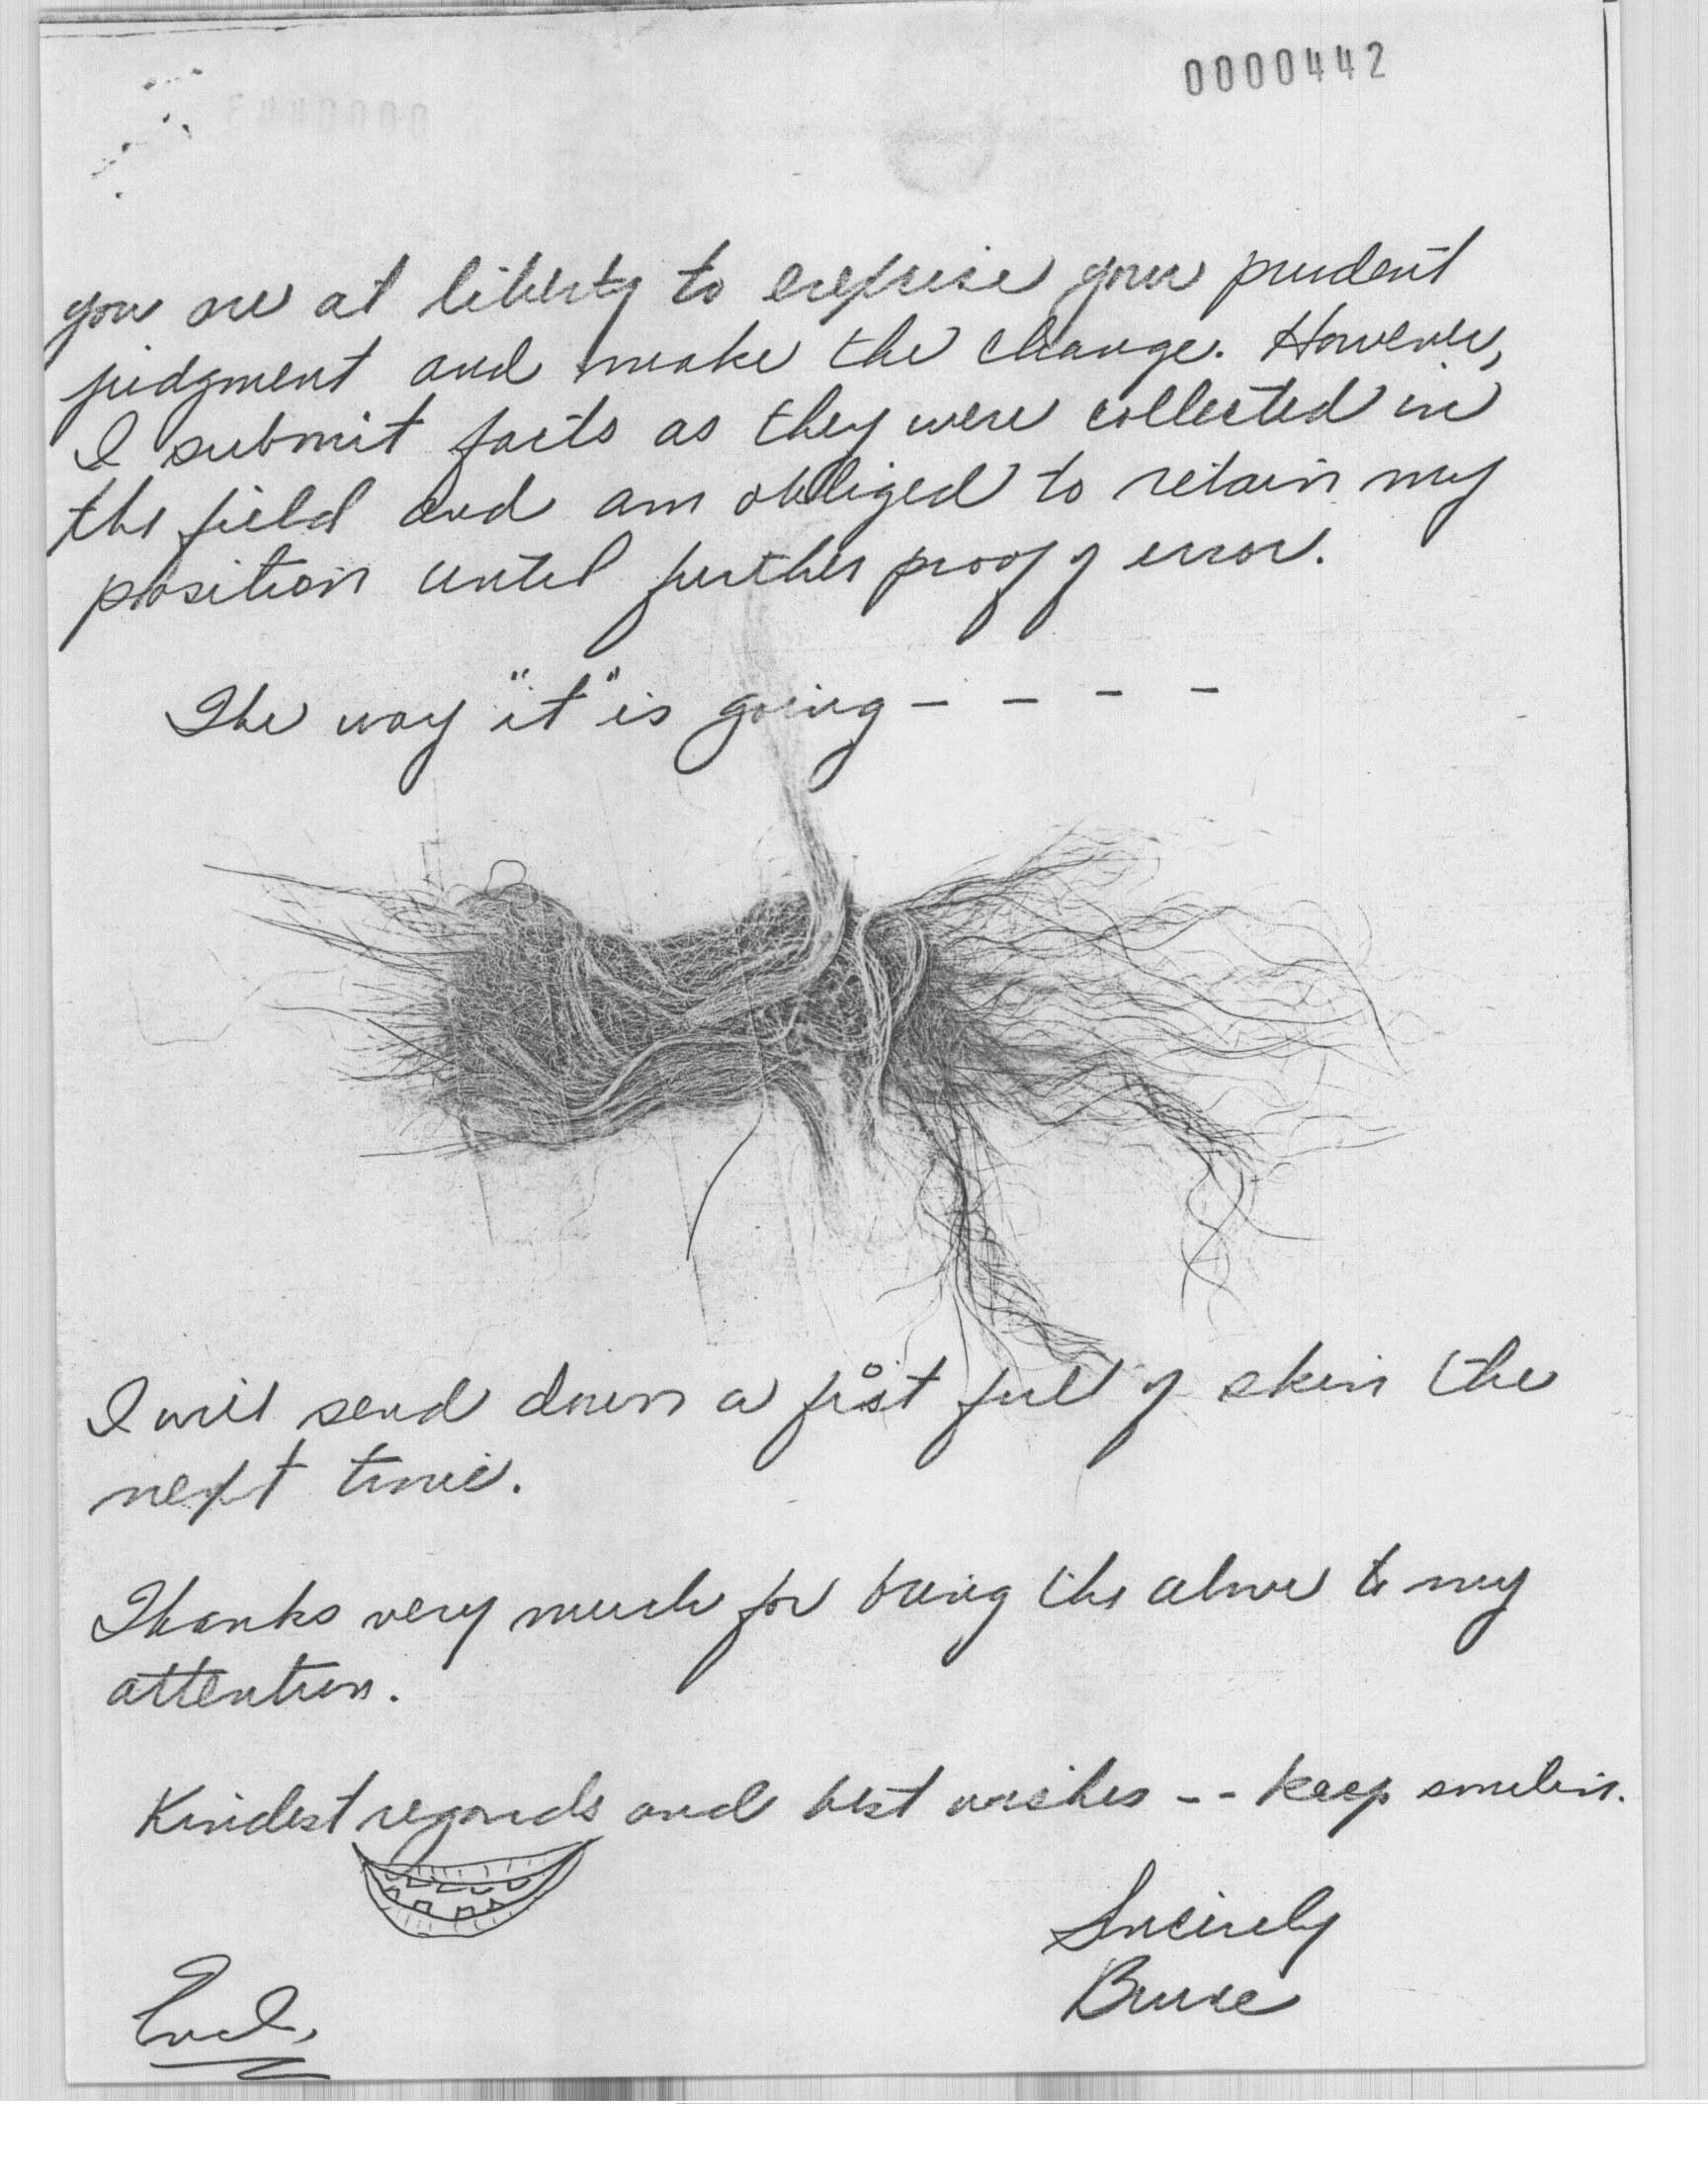 0000442
you are at liberty to exepsise your prudent
judgment and make the change. However,
I submit facts as they were collected in
the field and am obliged to retain my
position until further proof of error.
The way "it" is going - - - -
I will send down a fist full of skin the
next time.
Thanks very much for bring the above to my
attention.
Kindest regards and best wishes -- keep smilin.
Sincirely
Bruce
Encl.